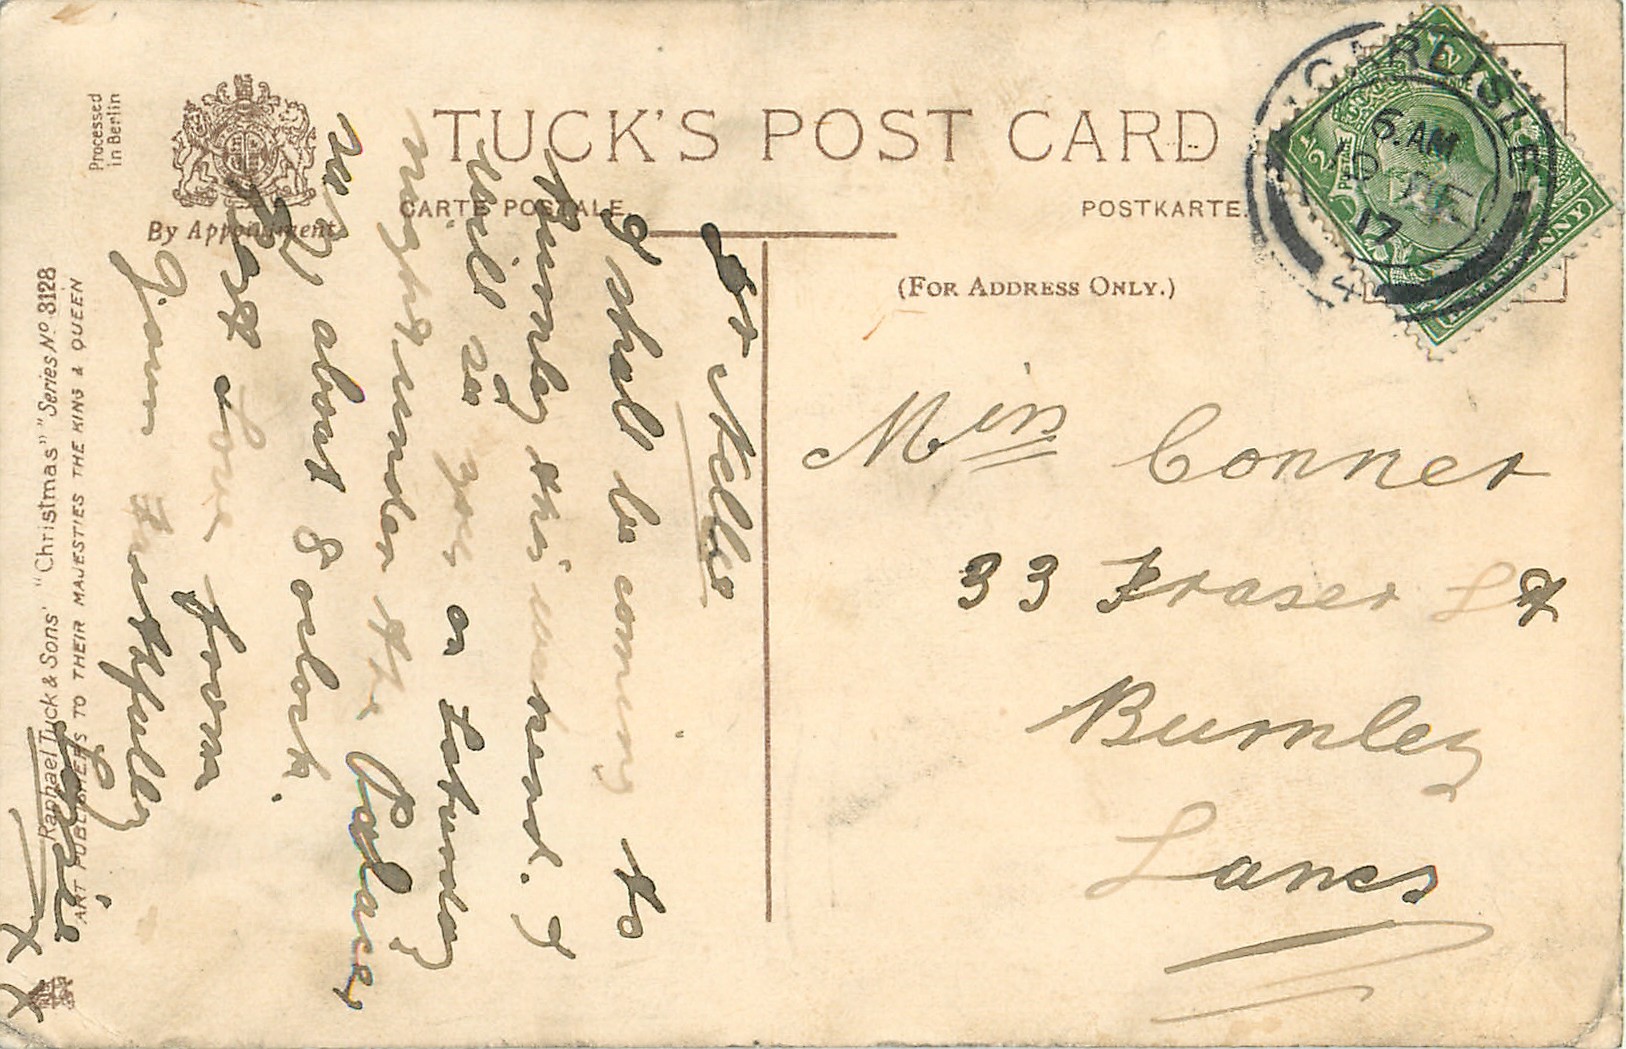 TUCK'S POST CARD
CARTE POSTALE
POSTKARTE.
(FOR ADDRESS ONLY.)
By Appointment
Processed
in Berlin
Raphael Tuck & Sons' "Christmas" Series No 3128
ART PUBLISHERS TO THEIR MAJESTIES THE KING & QUEEN
CARLISLE
6. AM
DE
17
Miss Conner
33 Fraser St
Burnley
Lancs
Dr Nelle
I shall be coming to
Burnley this weekend. I
will see you on Saturday
night under the Palace
about 8 oclock.
Best Love from